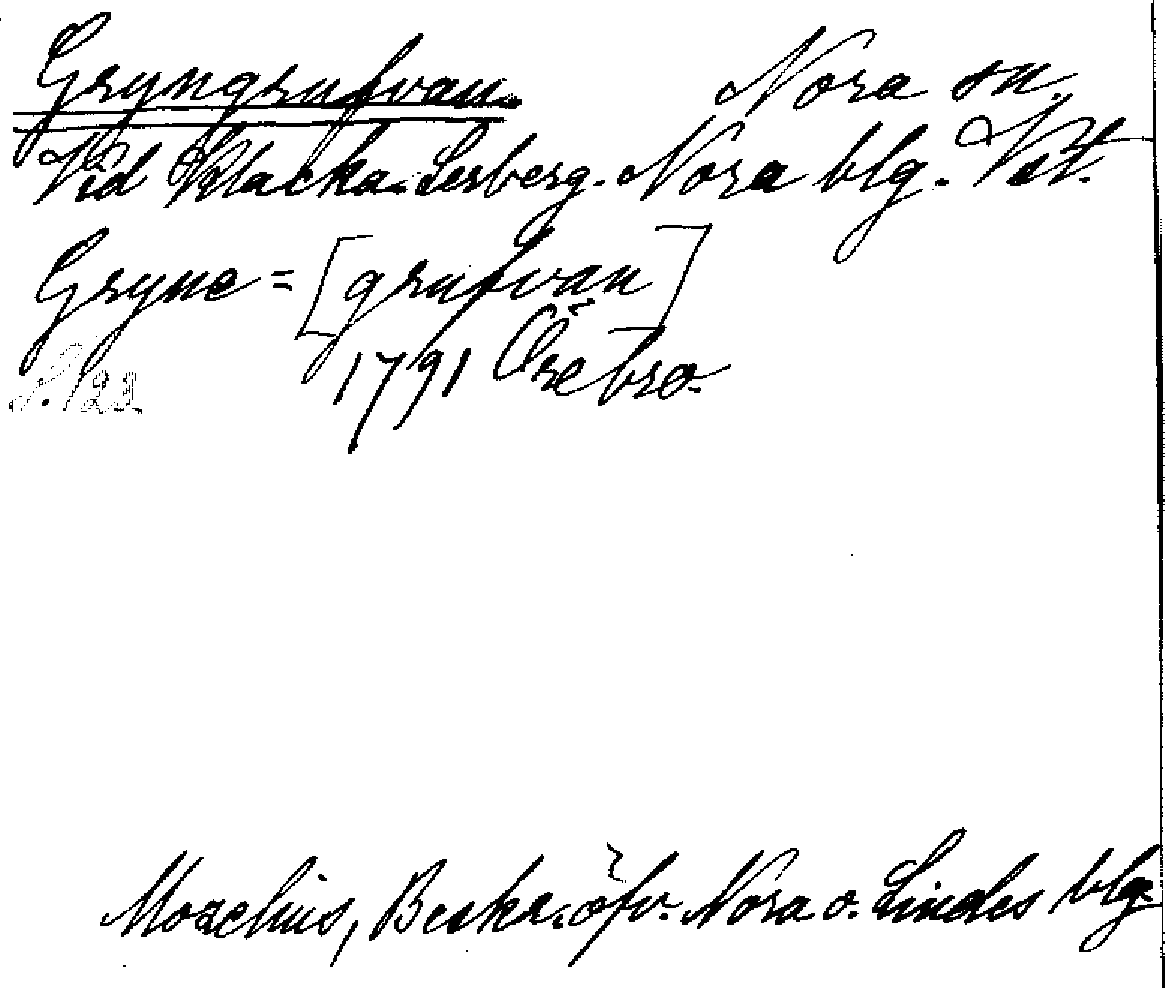 Gryngrufvan. Nora sn.
Vid Klacka-Lerberg. Nora blg. Vstm.
Gryne = [grufvan]
1791 Örebro.
S. 123
Moræhus, Beskr. öfv. Nora o. Lindes blg.